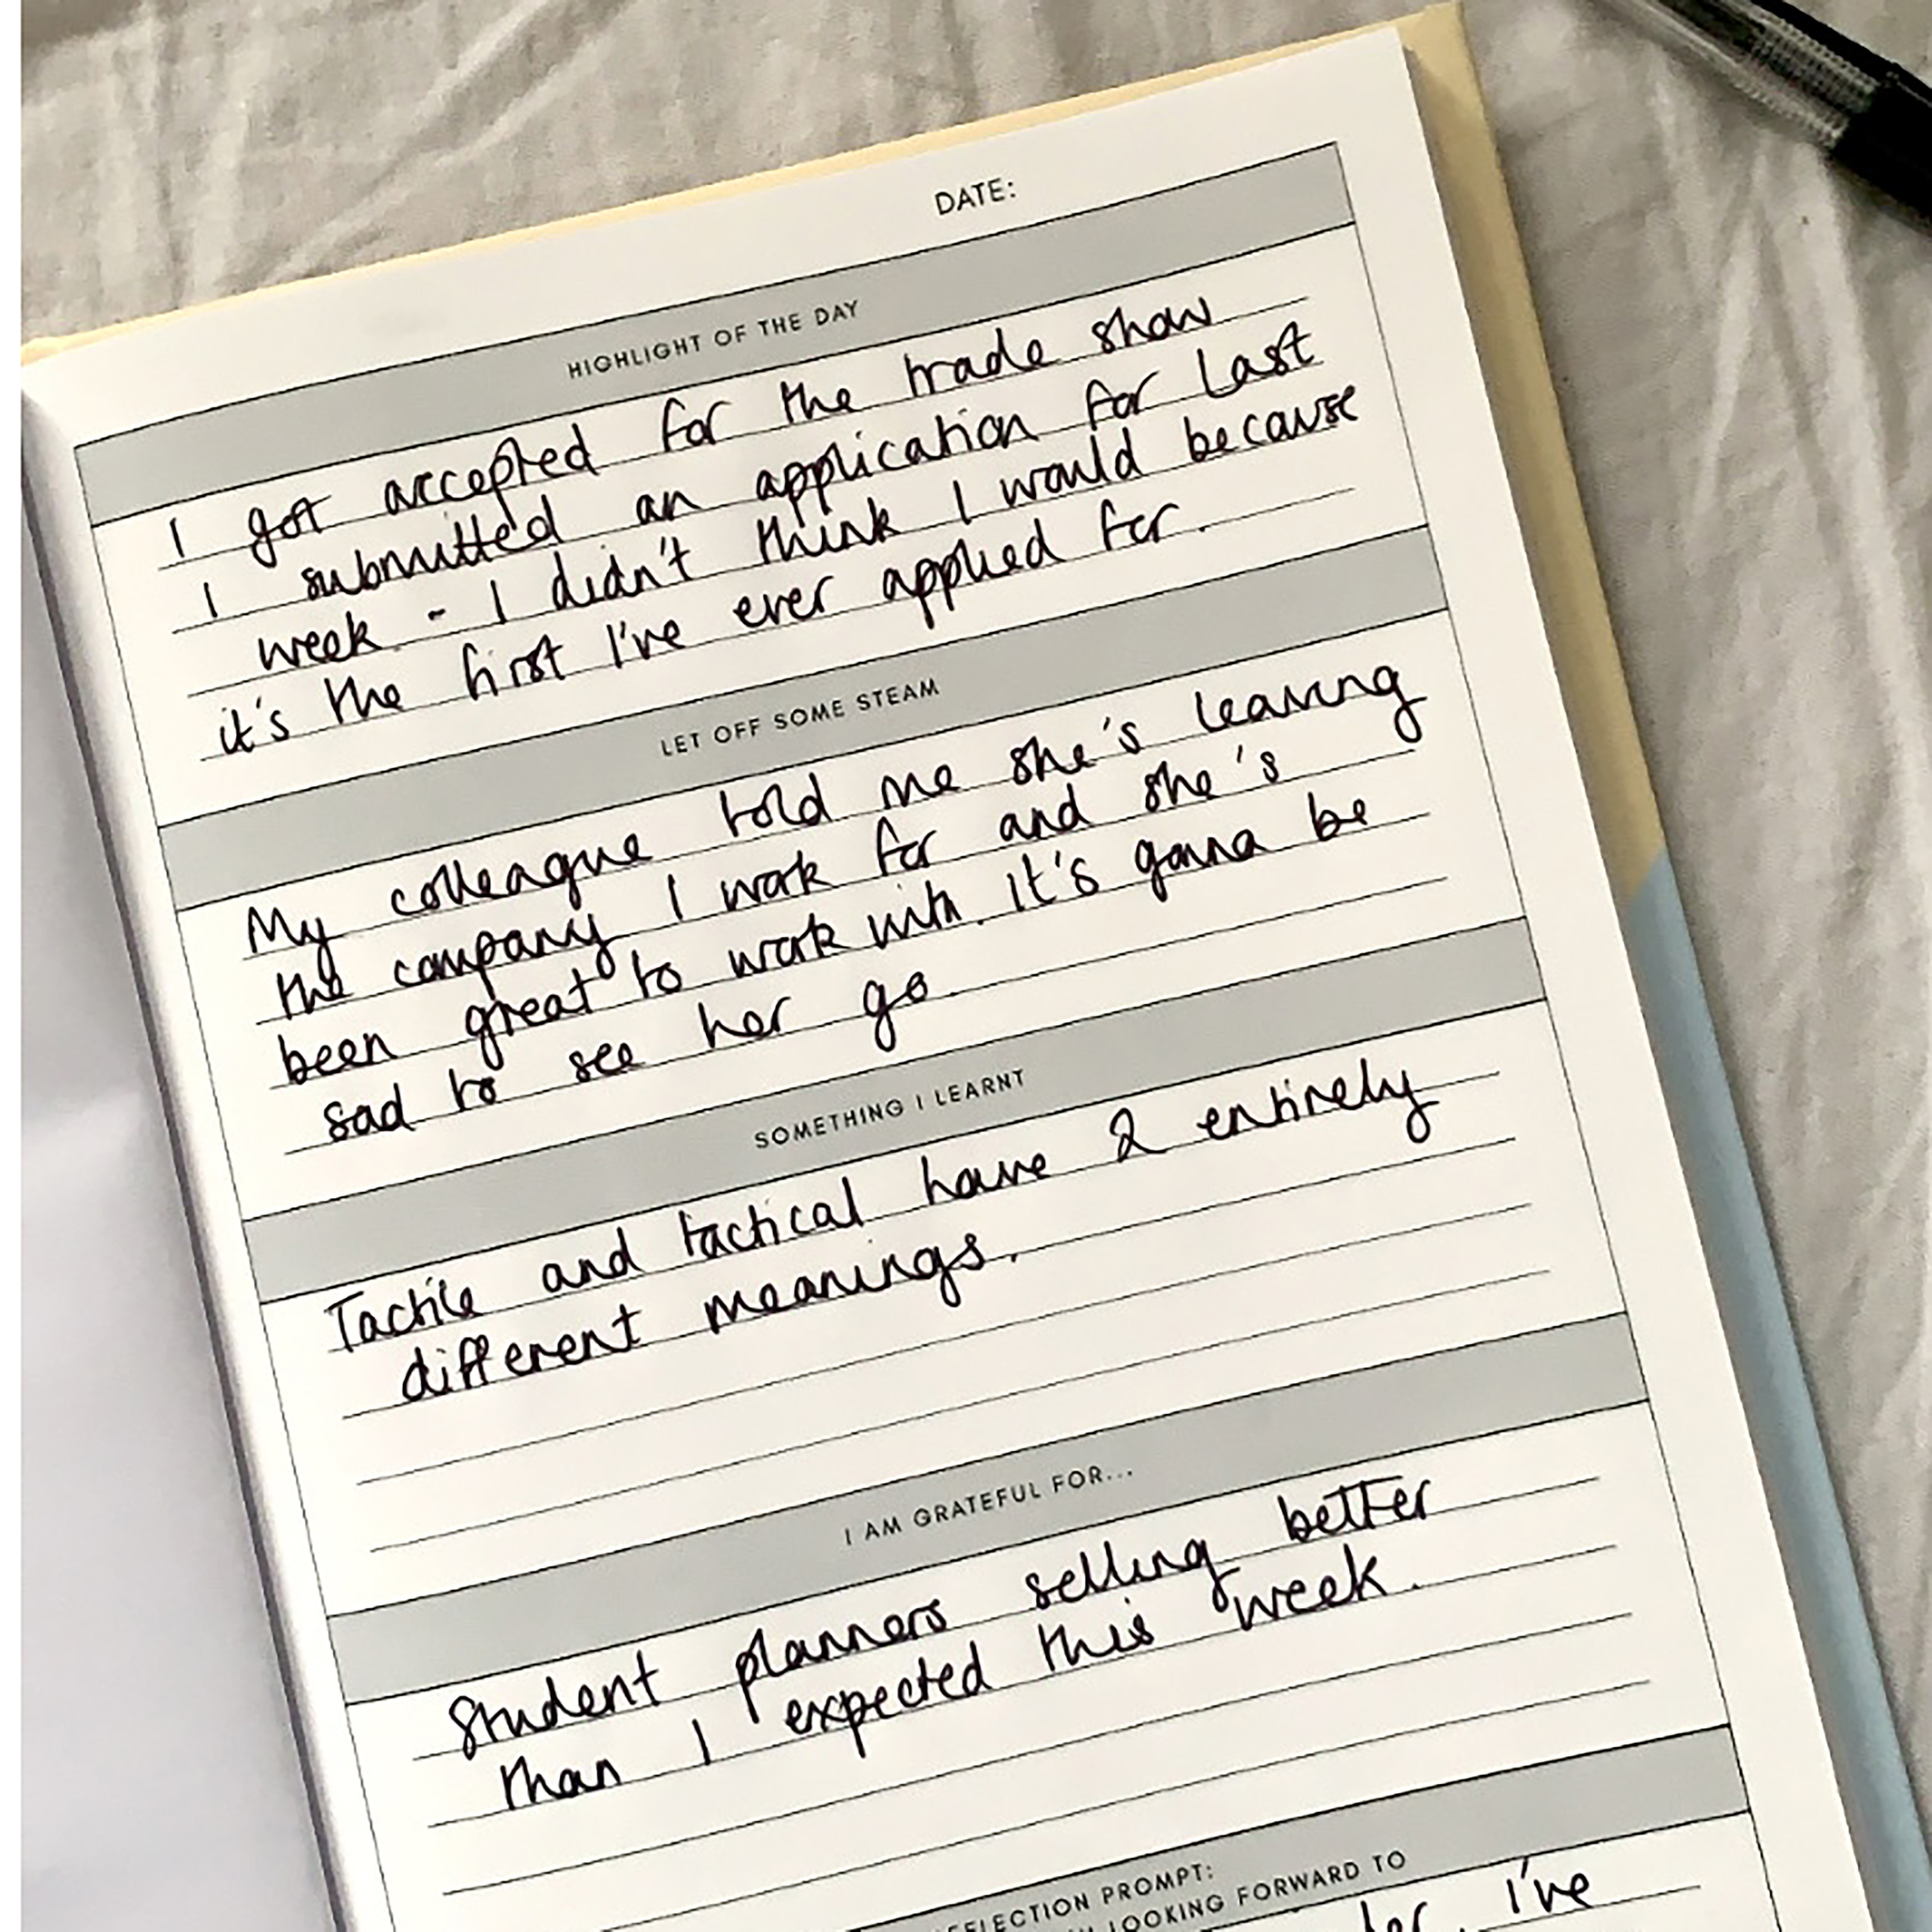 DATE:
HIGHLIGHT OF THE DAY
I got accepted for the trade show
I submitted an application for last
week - I didn't think I would because
it's the first I've ever applied for.
LET OFF SOME STEAM
My colleague told me she's leaving
the company I work for and she's
been great to work with. It's gonna be
sad to see her go
SOMETHING I LEARNT
Tactile and tactical have 2 entirely
different meanings.
I AM GRATEFUL FOR...
Student planners selling better
than I expected this week.
PROMPT:
LOOKING FORWARD TO
I've